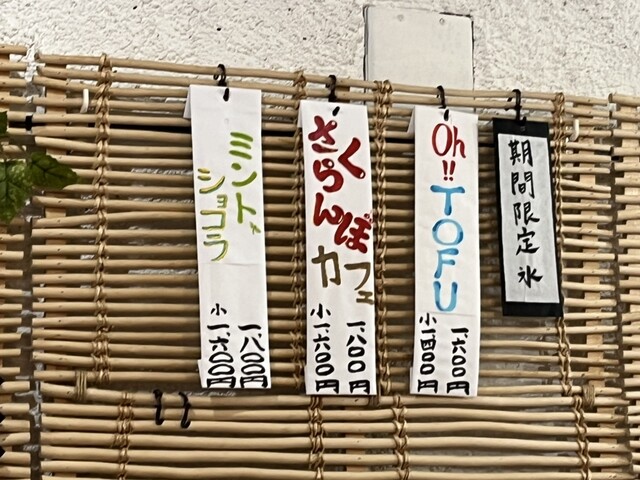 期間限定氷
Oh!!
TOFU
一、六〇〇円
小一、四〇〇円
さくらんぼ
カフェ
一、八〇〇円
小一、六〇〇円
ミント
ショコラ
一、八〇〇円
小一、六〇〇円